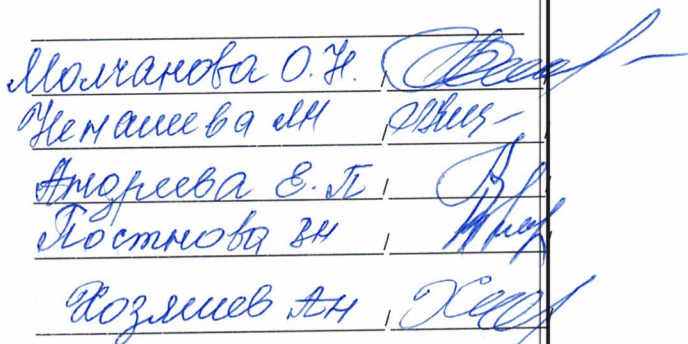 Молчанова О.Н. /
Ненашева ЛН /
Андреева Е.П /
Постнова ВН /
Хозяшев АН /